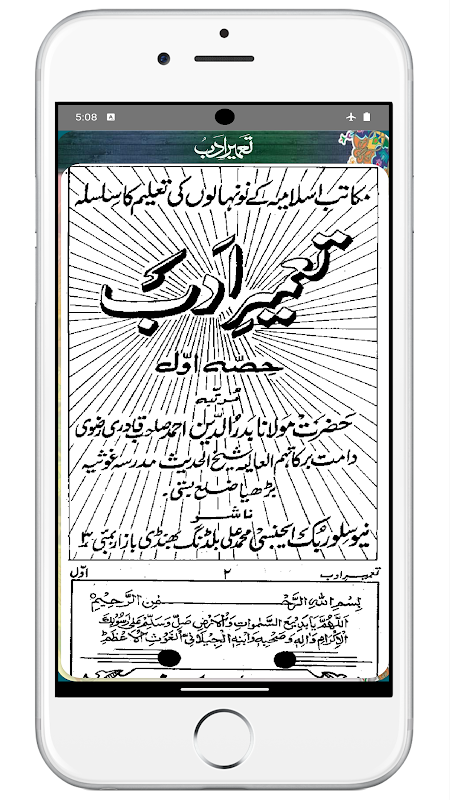 5:08
تعمیر ادب
مکاتب اسلامیہ کے نونہالوں کی تعلیم کا سلسلہ
تعمیر ادب
حصہ اول
مرتبہ
حضرت مولانا بدر الدین احمد صاحب قادری رضوی
دامت برکاتہم العالیہ شیخ الحدیث مدرسہ غوثیہ
بڑھیا ضلع بستی۔
ناشر
نیو سلور بک ایجنسی محمد علی بلڈنگ بھنڈی بازار بمبئی ۳
تعمیر ادب ۲ اول
بسم اللہ الرحمٰن الرحیم
اللھم یا بدیع السمٰوات والارض صل وسلم علی رسولک
الاکرام واٰلہ وصحبہ وابنہ الجیلانی الغوث الاعظم